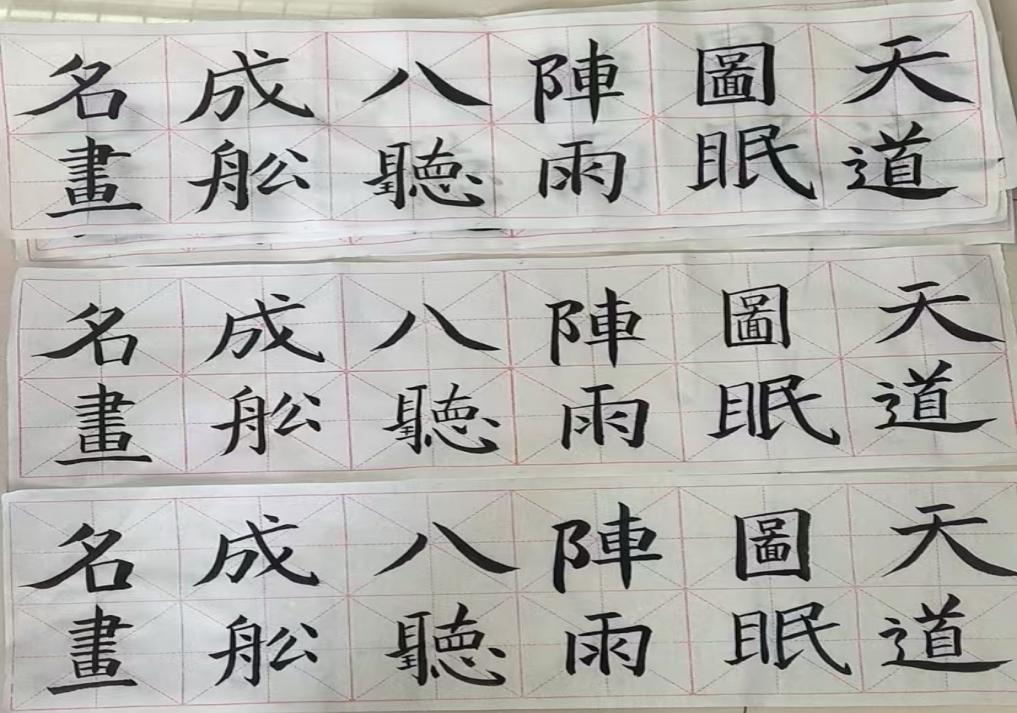 名成八陣圖天
畫舩聽雨眠道
名成八陣圖天
畫舩聽雨眠道
名成八陣圖天
畫舩聽雨眠道